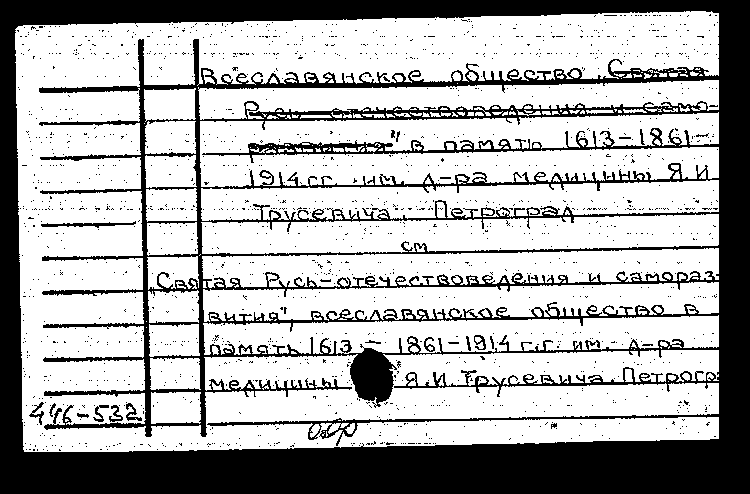 Всеславянское общество „Святая
Русь-отечествоведения и само-
развития" в память 1613-1861-
1914 гг. им. д-ра медицины Я.И
Трусевича. Петроград
см
„Святая Русь-отечествоведения и самораз-
вития", всеславянское общество в
память 1613 - 1861-1914 г.г. им. д-ра
медицины Я.И. Трусевича. Петрогр
446-532